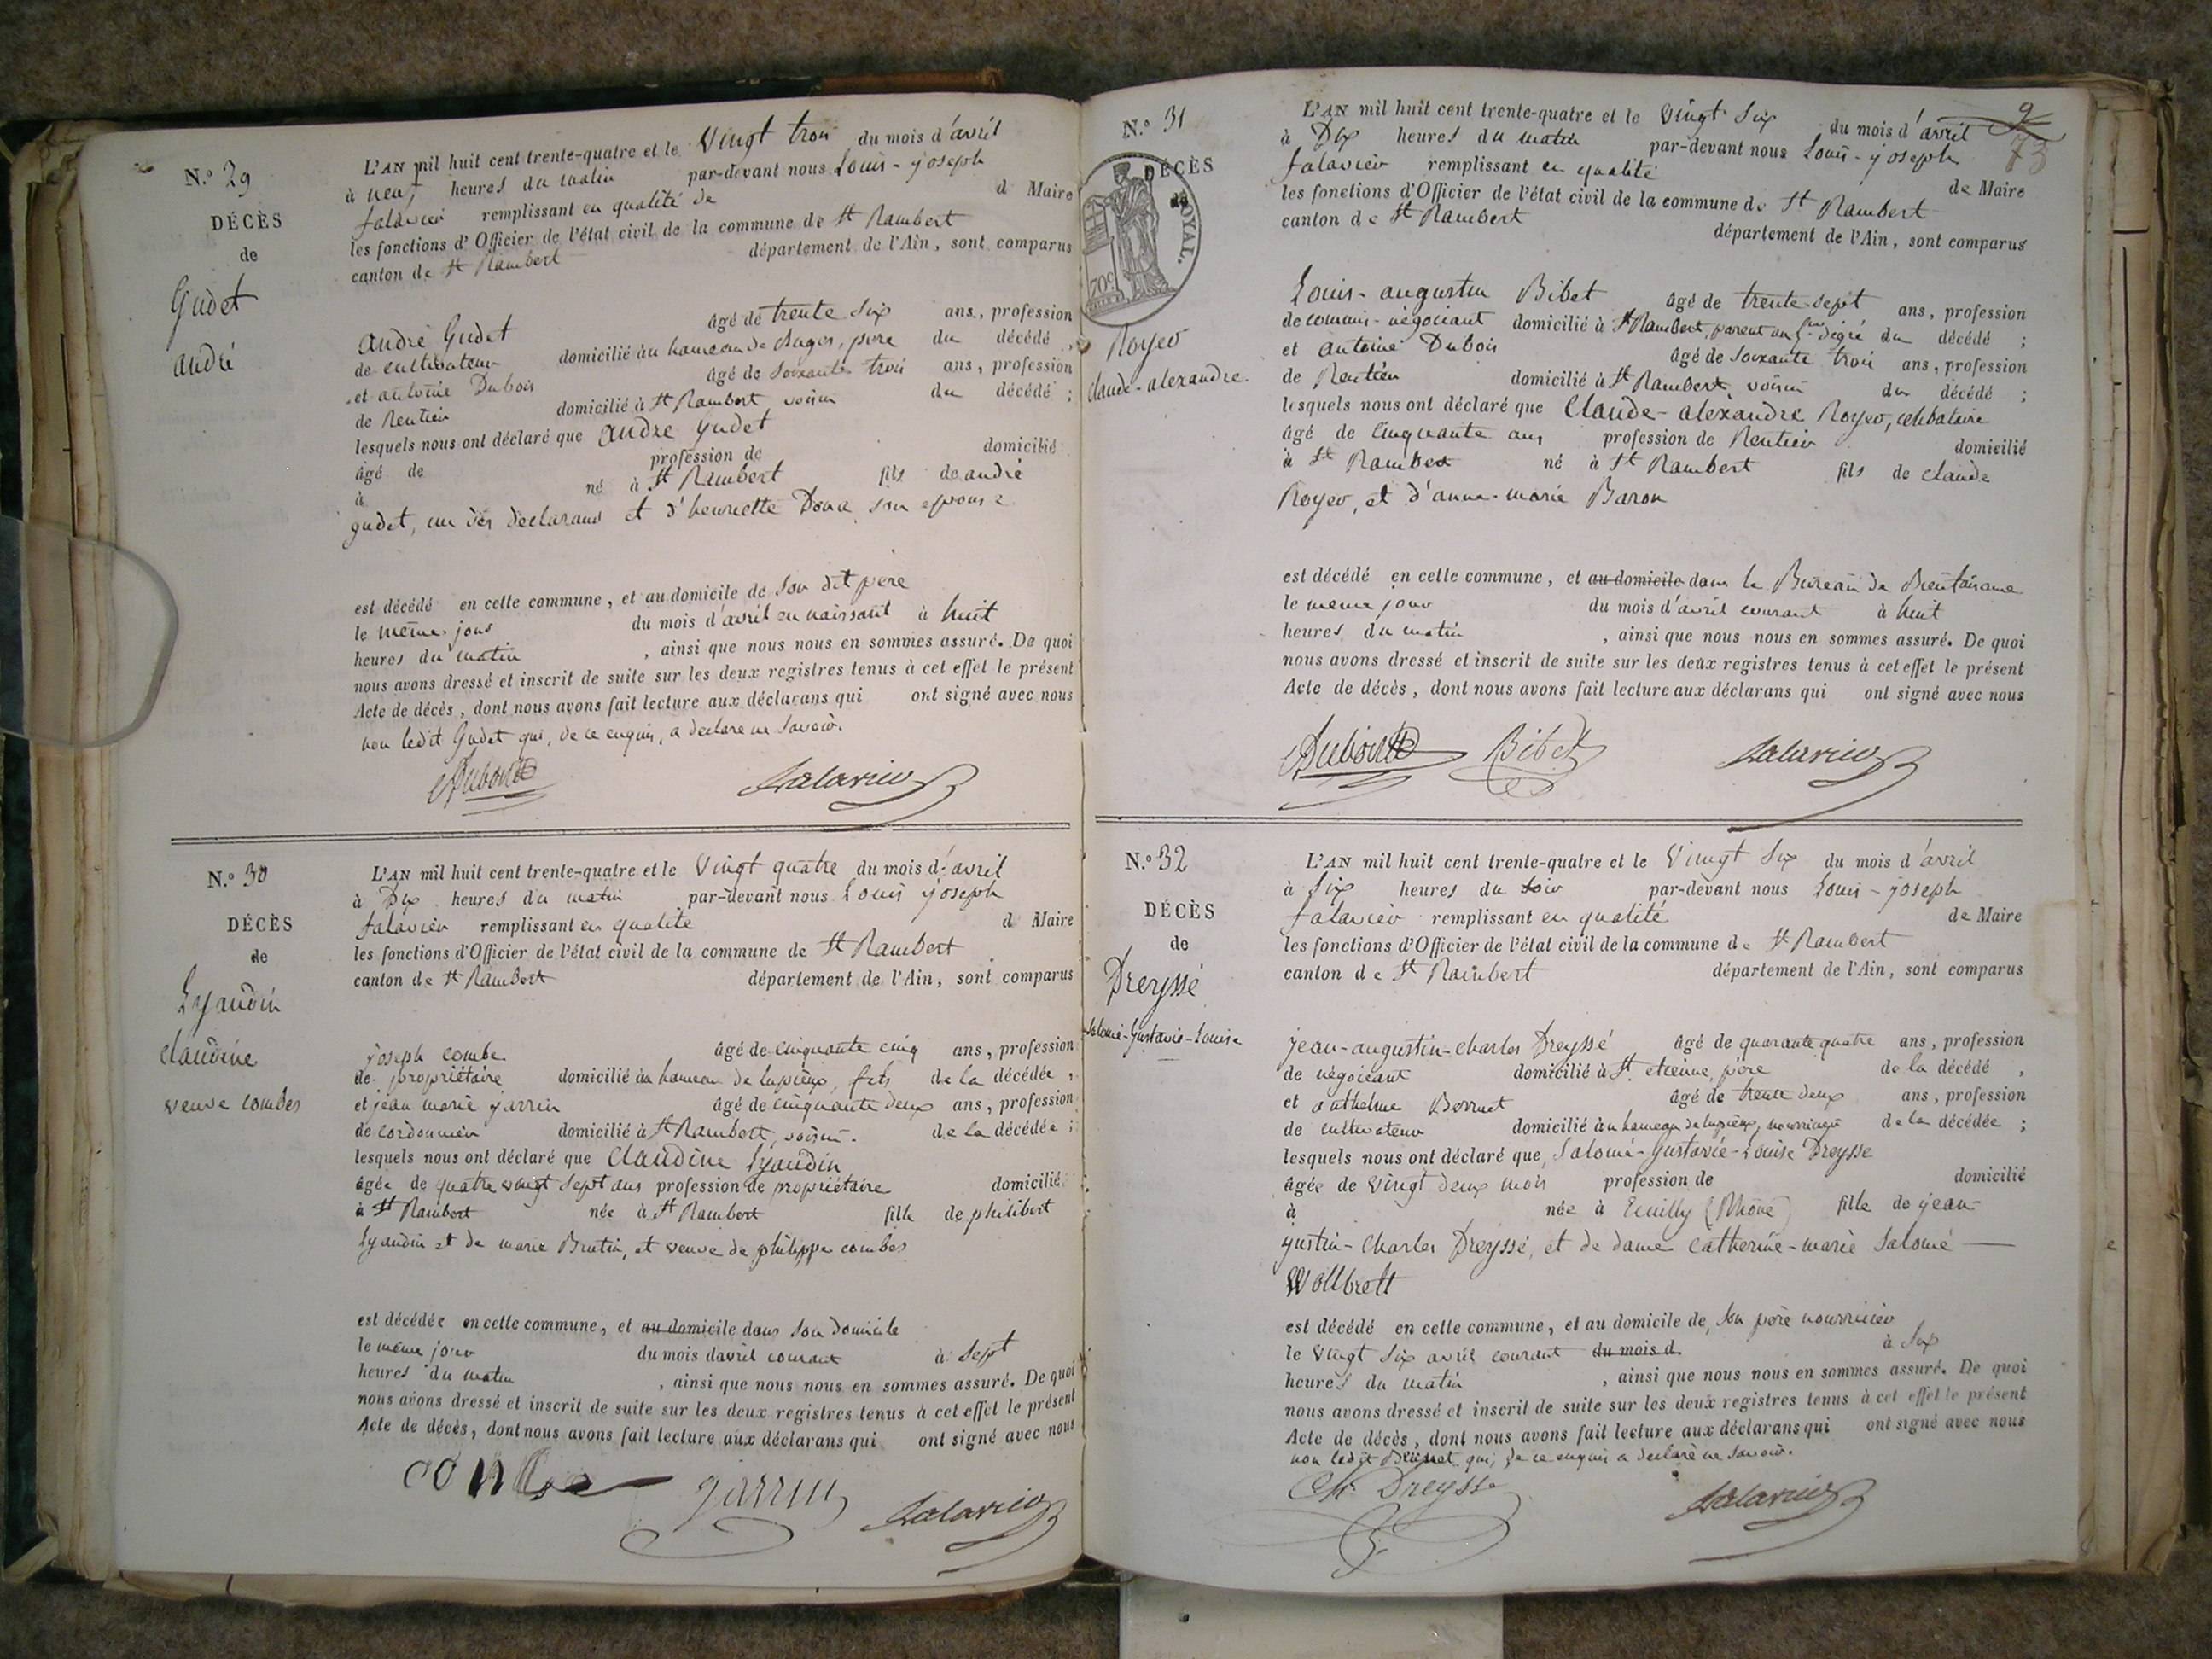 N.º 29
DÉCÈS
de
Gudet
andré
L'AN mil huit cent trente-quatre et le Vingt trois du mois d'avril
à neuf heures du matin par-devant nous Louis-joseph
falavier remplissant en qualité de d Maire
les fonctions d'Officier de l'état civil de la commune de St Rambert
canton de St Rambert département de l'Ain, sont comparus
andré Gudet âgé de trente six ans, profession
de cultivateur domicilié au hameau de, père du décédé,
et antoine Dubois âgé de soixante trois ans, profession
de Rentier domicilié à St Rambert voisin du décédé;
lesquels nous ont déclaré que andré gudet
âgé de profession de domicilié
à né à St Rambert fils de andré
gudet, un des déclarans et d'henriette son epouse
est décédé en cette commune, et au domicile de son dit père
le même jour du mois d'avril en naissant à huit
heures du matin, ainsi que nous nous en sommes assuré. De quoi
nous avons dressé et inscrit de suite sur les deux registres tenus à cet effet le présent
Acte de décès, dont nous avons fait lecture aux déclarans qui ont signé avec nous
non ledit Gudet qui, de ce enquis, a declaré ne savoir.
Dubois falavier
N.º 30
DÉCÈS
de
Lyaudin
claudine
veuve combes
L'AN mil huit cent trente-quatre et le Vingt quatre du mois d'avril
à Dix heures du matin par-devant nous Louis joseph
falavier remplissant en qualité d Maire
les fonctions d'Officier de l'état civil de la commune de St Rambert
canton de St Rambert département de l'Ain, sont comparus
joseph combe âgé de cinquante cinq ans, profession
de propriétaire domicilié au hameau de lupieux, fils de la décédée,
et jean marie jarrin âgé de cinquante deux ans, profession
de cordonnier domicilié à St Rambert, voisin. de la décédée;
lesquels nous ont déclaré que Claudine Lyaudin
âgée de quatre vingt sept ans profession de propriétaire domicilié
à St Rambert née à St Rambert fille de philibert
Lyaudin et de marie Brutin, et veuve de philippe combes
est décédée en cette commune, et au domicile dans son domicile
le même jour du mois d'avril courant à sept
heures du matin, ainsi que nous nous en sommes assuré. De quoi
nous avons dressé et inscrit de suite sur les deux registres tenus à cet effet le présent
Acte de décès, dont nous avons fait lecture aux déclarans qui ont signé avec nous
combe jarrin falavier
9
73
N.º 31
DÉCÈS
de
ROYAL.
70c
Royer
claude-alexandre.
L'AN mil huit cent trente-quatre et le Vingt six du mois d'avril
à Dix heures du matin par-devant nous Louis-joseph
falavier remplissant en qualité de Maire
les fonctions d'Officier de l'état civil de la commune de St Rambert
canton de St Rambert département de l'Ain, sont comparus
Louis-augustin Bibet âgé de trente-sept ans, profession
de commis-négociant domicilié à St Rambert, parent au degré du décédé;
et antoine Dubois âgé de soixante trois ans, profession
de Rentier domicilié à St Rambert voisin du décédé;
lesquels nous ont déclaré que Claude-alexandre Royer, celibataire
âgé de Cinquante ans profession de Rentier domicilié
à St Rambert né à St Rambert fils de claude
Royer, et d'anne-marie Baron
est décédé en cette commune, et au domicile dans le Bureau de
le meme jour du mois d'avril courant à huit
heures du matin, ainsi que nous nous en sommes assuré. De quoi
nous avons dressé et inscrit de suite sur les deux registres tenus à cet effet le présent
Acte de décès, dont nous avons fait lecture aux déclarans qui ont signé avec nous
Dubois Bibet falavier
N.º 32
DÉCÈS
de
Dreyssé
Salomé-Gustavie-Louise
L'AN mil huit cent trente-quatre et le Vingt six du mois d'avril
à six heures du soir par-devant nous Louis-joseph
falavier remplissant en qualité de Maire
les fonctions d'Officier de l'état civil de la commune de St Rambert
canton de St Rambert département de l'Ain, sont comparus
jean-augustin-charles Dreyssé âgé de quarante quatre ans, profession
de négociant domicilié à St. etienne, père de la décédé,
et anthelme âgé de trente deux ans, profession
de cultivateur domicilié au hameau de lupieux, nourricier de la décédée;
lesquels nous ont déclaré que, Salomé-Gustavie-Louise Dreysse
âgée de vingt deux mois profession de domicilié
à née à Ecully (Rhône) fille de jean-
gustin-Charles Dreyssé, et de dame catherine-marie Salomé
Wollbrett
est décédé en cette commune, et au domicile de, son père nourricier
le vingt six avril courant du mois d à six
heures du matin, ainsi que nous nous en sommes assuré. De quoi
nous avons dressé et inscrit de suite sur les deux registres tenus à cet effet le présent
Acte de décès, dont nous avons fait lecture aux déclarans qui ont signé avec nous
non ledit qui, de ce enquis a declaré ne savoir.
Ch. Dreysse falavier